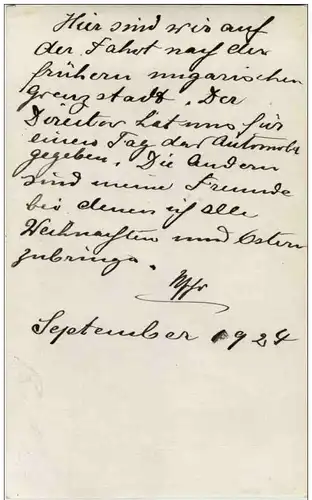 Hier sind wir auf
der Fahrt nach der
frühern ungarischen
Grenzstadt. Der
Director hat uns für
einen Tag das Automobil
gegeben. Die Andern
sind meine Freunde
bei denen ich alle
Weihnachten und Ostern
zubringe.
September 1924